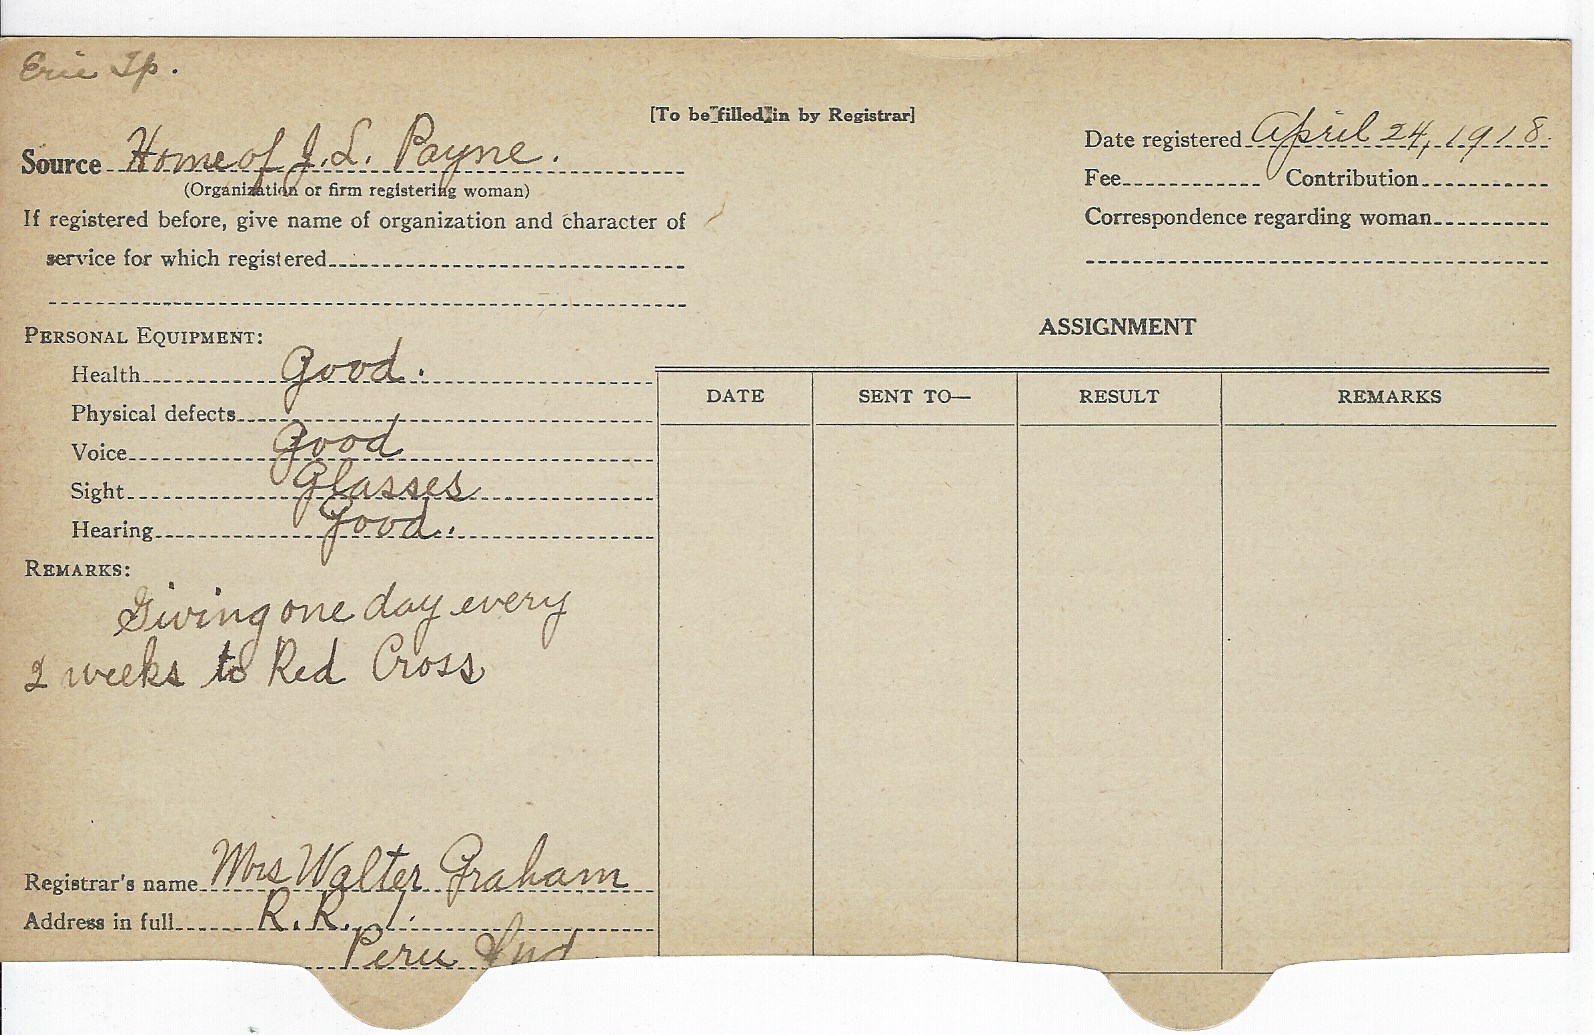 Erie Tp.
[To be filled in by Registrar]
Source Home of J. L. Payne.
(Organization or firm registering woman)
If registered before, give name of organization and character of
service for which registered
Date registered April 24, 1918.
Fee Contribution
Correspondence regarding woman
PERSONAL EQUIPMENT:
Health Good.
Physical defects
Voice Good
Sight Glasses
Hearing Good.
REMARKS:
Giving one day every
2 weeks to Red Cross
Registrar's name Mrs Walter Graham
Address in full R. R. 1.
Peru Ind
ASSIGNMENT
DATE SENT TO— RESULT REMARKS